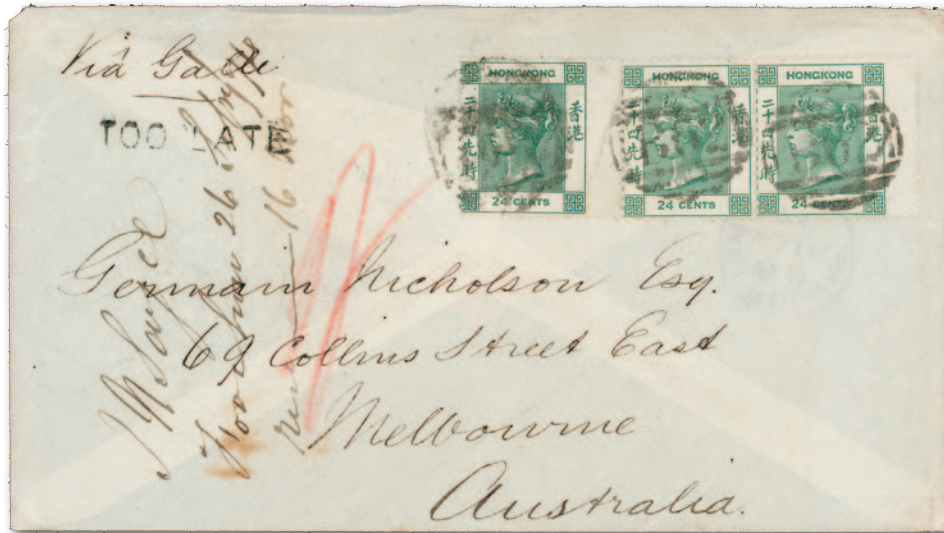 Viâ Galle
TOO LATE
HONGKONG
二十四先時
香港
24 CENTS
HONGKONG
二十四先時
香港
24 CENTS
HONGKONG
二十四先時
香港
24 CENTS
Germain Nicholson Esq.
69 Collins Street East
Melbourne
Australia.
Foochow 26
16